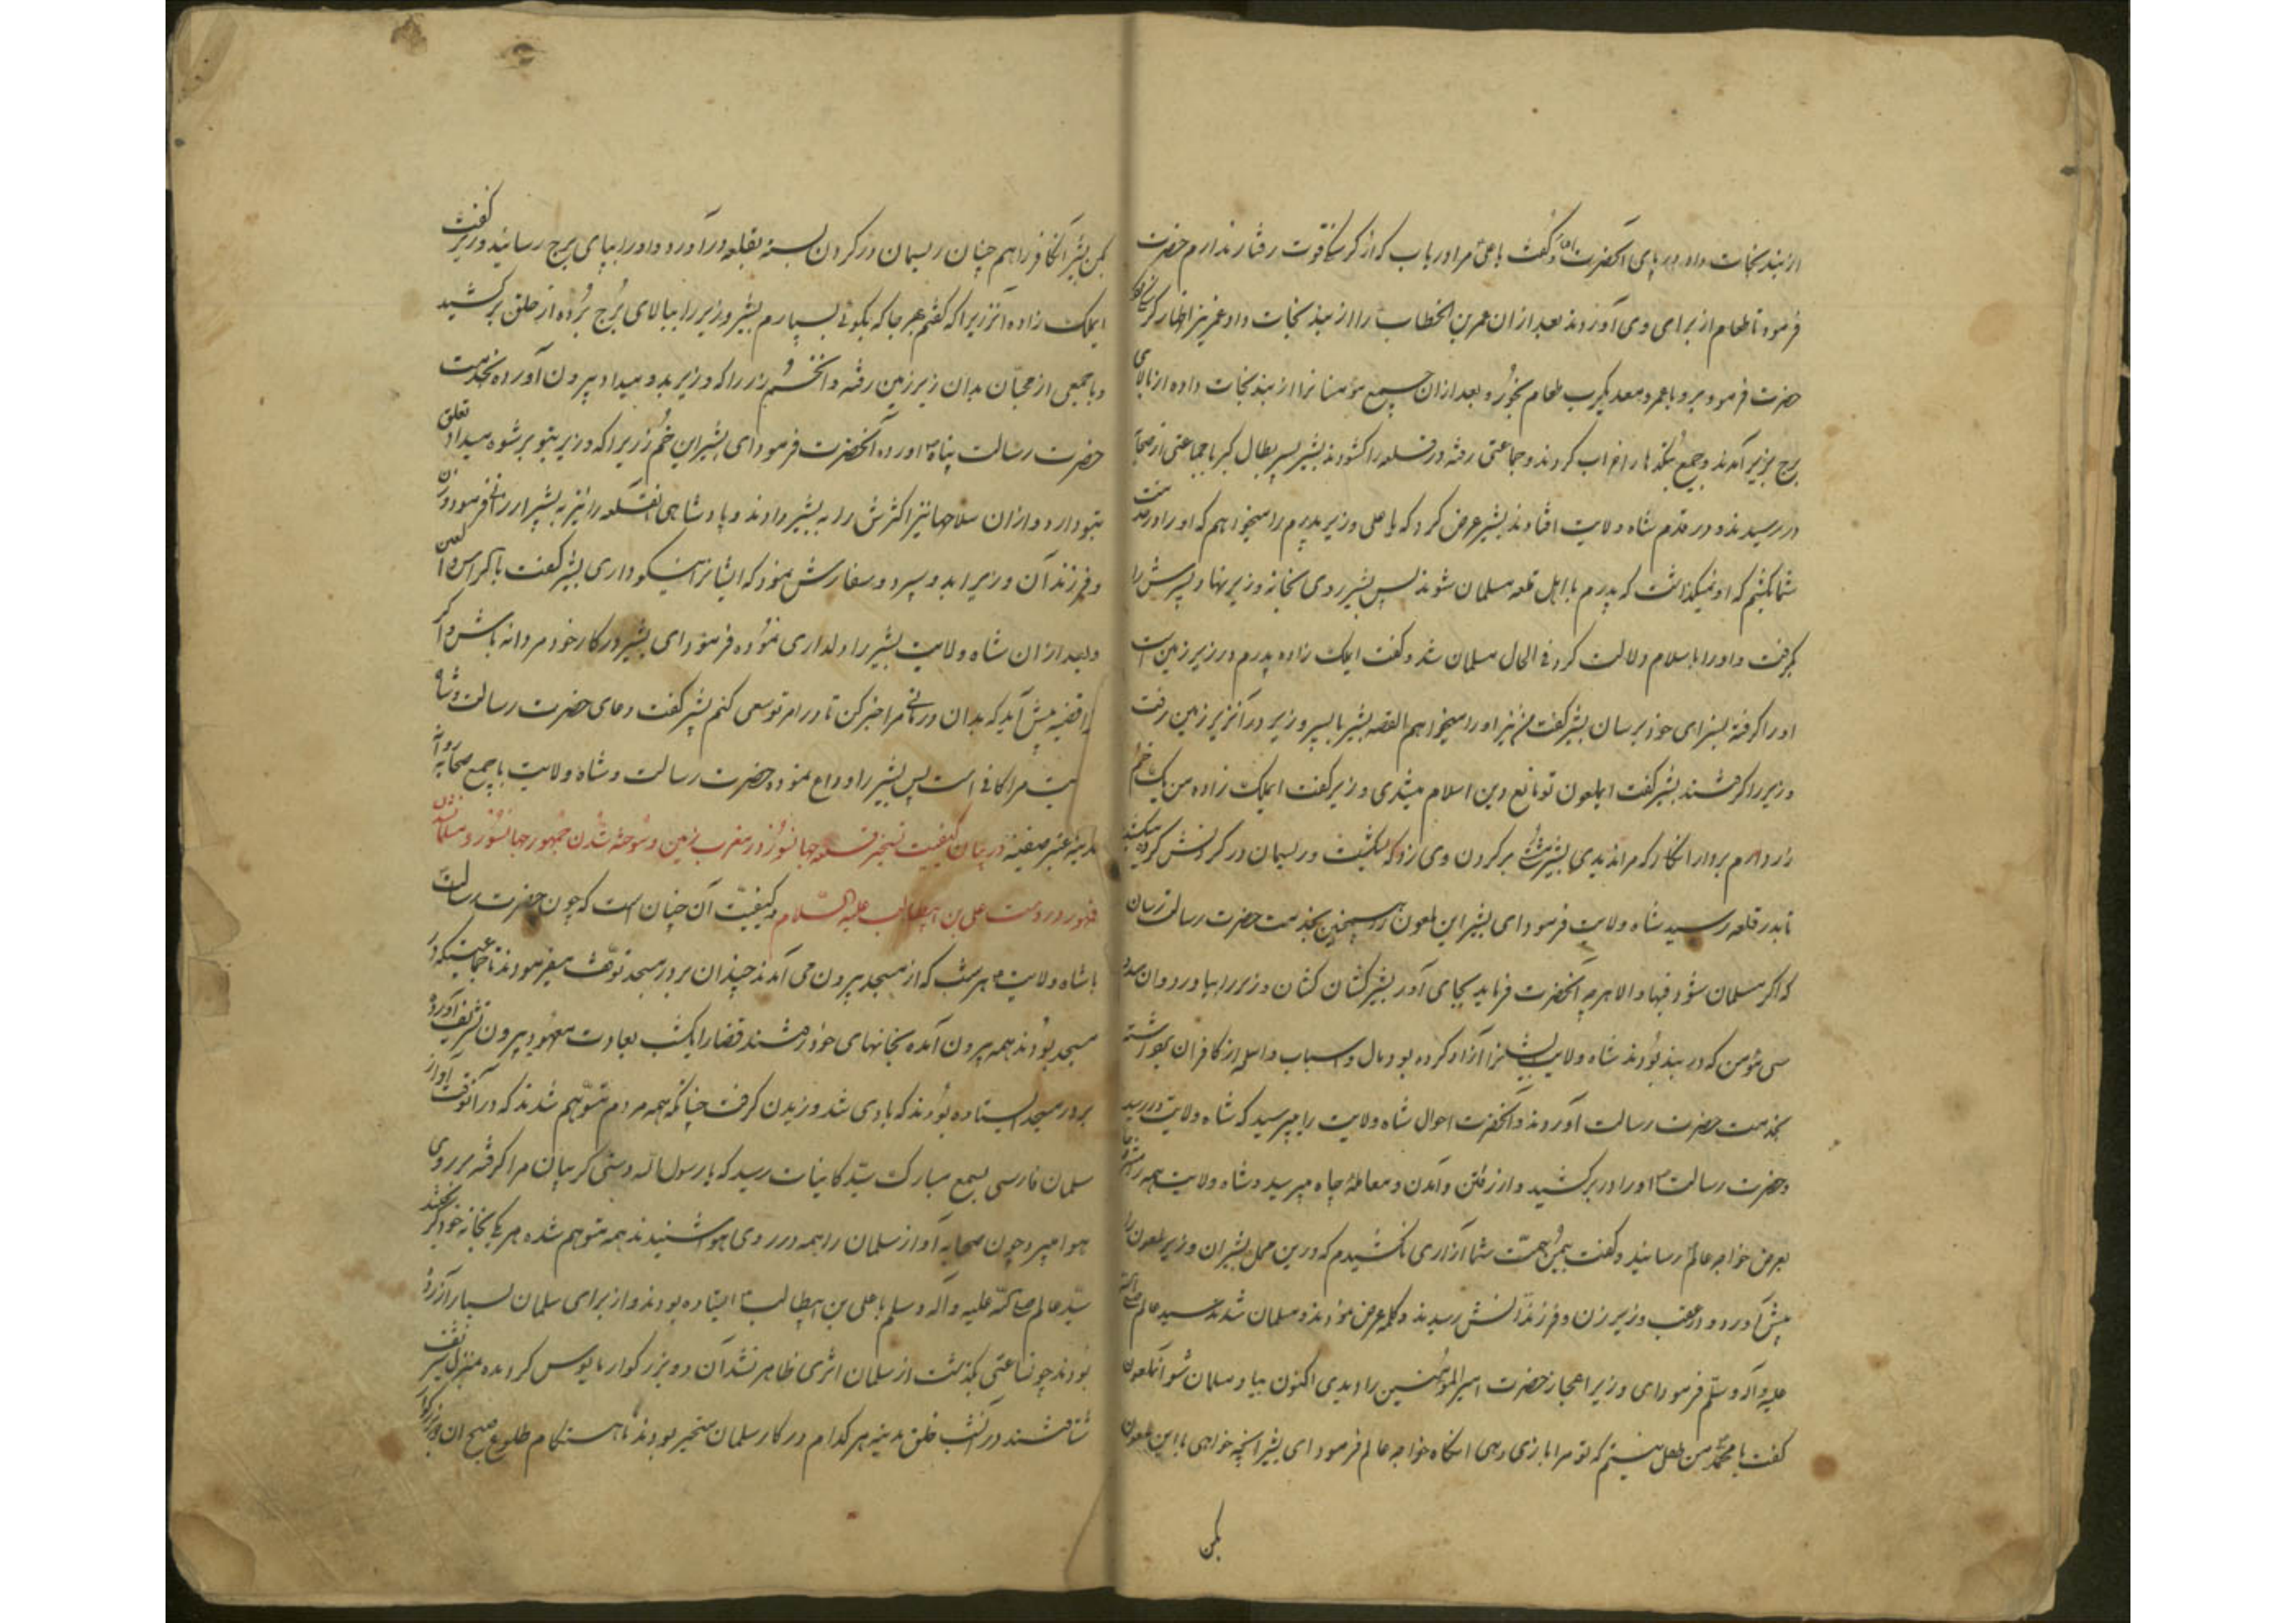 از بند نجات داد در پای آنحضرت افتاد و گفت یا علی مرا دریاب که از گرسنگی قوت رفتار ندارم حضرت
فرمود تا طعام از برای وی آوردند بعد ازان عمر بن الخطاب را از بند نجات داد عمر نیز اظهار گرسنگی کرد
حضرت فرمود برو با عمرو معدیکرب طعام بخور و بعد ازان جمیع مؤمنانرا از بند نجات داده از بالای
برج بزیر آمدند و جمیع بتکدها را خراب کردند و جماعتی رفته در قلعه را کشودند بشیر پسر بطال کبر با جماعتی از صحابه
در رسیدند و در قدم شاه ولایت افتادند بشیر عرض کرد که یا علی وزیر پدرم را میخواهم که او را در خدمت
شما بکشیم که او نمیکذاشت که پدرم با اهل قلعه مسلمان شوند پس بشیر روی بخانه وزیر نهاد و پسرش را
بگرفت و او را باسلام دلالت کرد فی الحال مسلمان شد و گفت ایملک زاده پدرم در زیر زمین است
او را گرفته بسزای خود برسان بشیر گفت من نیز او را میخواهم القصه بشیر با پسر وزیر در آنزیر زمین رفت
وزیر را گرفتند بشیر گفت ایملعون تو مانع دین اسلام میشدی وزیر گفت ایملک زاده من یک خم
زر دارم بردار انکار که مرا ندیدی بشیر مشتی بر گردن وی زد که بشکست و ریسمان در گردنش کرده میکشید
تا بدر قلعه رسید شاه ولایت فرمود ای بشیر این ملعون را همچنین بخدمت حضرت رسالت رسان
که اگر مسلمان شود فبها و الا هر چه آنحضرت فرماید بجای آور بشیر کشان کشان وزیر را بیاورد و ان
سی مؤمن که در بند بودند شاه ولایت ایشانرا آزاد کرده بود مال و اسباب و اسلحه از کافران
بخدمت حضرت رسالت آوردند و آنحضرت احوال شاه ولایت را میپرسید که شاه ولایت در رسید
و حضرت رسالت او را در بر کشید و از رفتن و آمدن و معامله چاه میپرسید و شاه ولایت همه را
بعرض خواجه عالم رسانید و گفت بیمن همت شما آزاری نکشیدم که درین محل بشیر ان وزیر ملعون را
پیش آورد و در عقب وزیر زن و فرزندانش رسیدند و کلمه عرض نمودند و مسلمان شدند سید عالم صلی الله
علیه و آله و سلم فرمود ای وزیر اعجاز حضرت امیر المؤمنین را دیدی اکنون بیا و مسلمان شو آنملعون
گفت یا محمد من طفل نیستم که تو مرا بازی دهی انکاه خواجه عالم فرمود ای بشیر انچه خواهی با این ملعون
بکن
بکن بشیر انکافر را هم چنان ریسمان در گردن بسته بقلعه در آورد و او را بپای برج رسانید وزیر گفت
ایملک زاده آنزر را که گفتم بهر جا که بگوئی بسپارم بشیر وزیر را ببالای برج برده از حلق بر کشید
و با جمعی از محبان بدان زیر زمین رفته و آنخم زر را که وزیر بدو میداد بیرون آورده بخدمت
حضرت رسالت پناه آورده آنحضرت فرمود ای بشیر این خم زر را که وزیر بتو برشوه میداد تعلق
بتو دارد و ازان سلاحها نیز اکثرش را به بشیر دادند و پادشاهی انقلعه را نیز به بشیر ارزانی فرمود و زن
و فرزند آن وزیر را بدو سپرد و سفارش نمود که ایشانرا نیکو داری بشیر گفت
و بعد ازان شاه ولایت بشیر را دلداری نموده فرمود ای بشیر در کار خود مردانه باش و اگر
ترا قضیه پیش آید که بدان درمانی مرا خبر کن تا در امر تو سعی کنم بشیر گفت دعای حضرت رسالت و شاه
ولایت مرا کافی است پس بشیر را وداع نموده حضرت رسالت و شاه ولایت با جمیع صحابه روانه
مدینه شدند در بیان کیفیت تسخیر قلعه جهانسوز در مغرب زمین و سوخته شدن جمهور جهانسوز و مسلمان شدن
در دست علی بن ابیطالب علیه السلام و کیفیت آن چنان است که چون حضرت رسالت
با شاه ولایت هر شب که از مسجد بیرون می آمدند چندان بر در مسجد توقف میفرمودند تا جماعتیکه در
مسجد بودند همه بیرون آمده بخانهای خود رفتند قضا را یکشب بعادت معهود بیرون تشریف آورده
بر در مسجد ایستاده بودند که بادی شد وزیدن گرفت چنانکه همه مردم متوهم شدند که در آنوقت آواز
سلمان فارسی بسمع مبارک سید کاینات رسید که یا رسول الله دستی گریبان مرا گرفته بر روی
هوا میبرد چون صحابه آواز سلمان را همه در روی هوا شنیدند همه متوهم شده هر یک بخانه خود
سید عالم صلی الله علیه و آله و سلم با علی بن ابیطالب ایستاده بودند و از برای سلمان بسیار آزرده
بودند چون ساعتی بگذشت از سلمان اثری ظاهر نشد آن دو بزرگوار مایوس گردیده بمنزل شریف
شتافتند در آنشب خلق مدینه هر کدام در کار سلمان متحیر بودند تا هنگام طلوع صبح ان دو بزرگوار